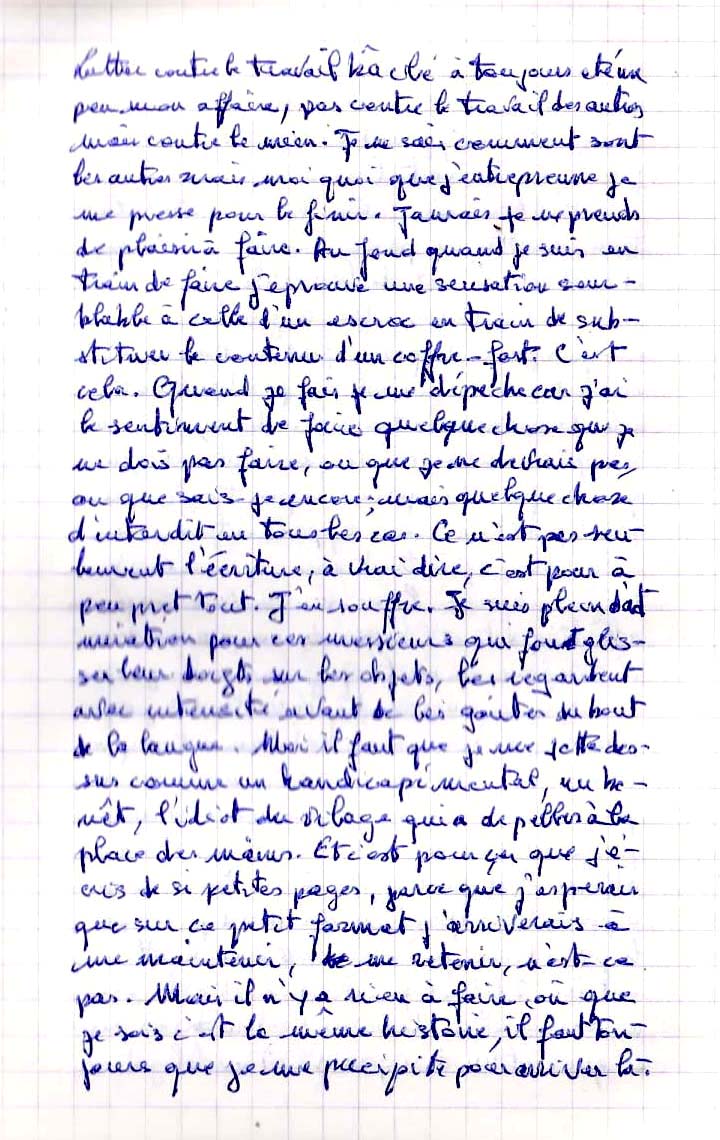 Lutter contre le travail bâclé à toujours été un
peu mon affaire, pas contre le travail des autres
mais contre le mien. Je ne sais comment sont
les autres mais moi quoi que j'entreprenne je
me presse pour le finir. Jamais je ne prends
de plaisir à faire. Au fond quand je suis en
train de faire j'éprouve une sensation sem-
blable à celle d'un escroc en train de sub-
stituer le contenu d'un coffre-fort. C'est
cela. Quand je fais je me dépêche car j'ai
le sentiment de faire quelque chose que je
ne dois pas faire, ou que je ne devrais pas,
ou que sais-je encore; mais quelque chose
d'interdit en tous les cas. Ce n'est pas seu-
lement l'écriture, à vrai dire, c'est pour à
peu pret tout. J'en souffre. Je suis plein d'ad
miration pour ces messieurs qui font glis-
ser leur doigts sur les objets, les regardent
avec intensité avant de les goûter du bout
de la langue. Moi il faut que je me jette des-
sus comme un handicapé mental, un be-
nêt, l'idiot du village qui a de pelles à la
place des mains. Et c'est pour ça que j'é-
cris de si petites pages, parce que j'esperais
que sur ce petit format j'arriverais à
me maintenir, me retenir, n'est-ce
pas. Mais il n'y a rien à faire, où que
je sois c'est la même histoire, il faut tou-
jours que je me précipite pour arriver là.